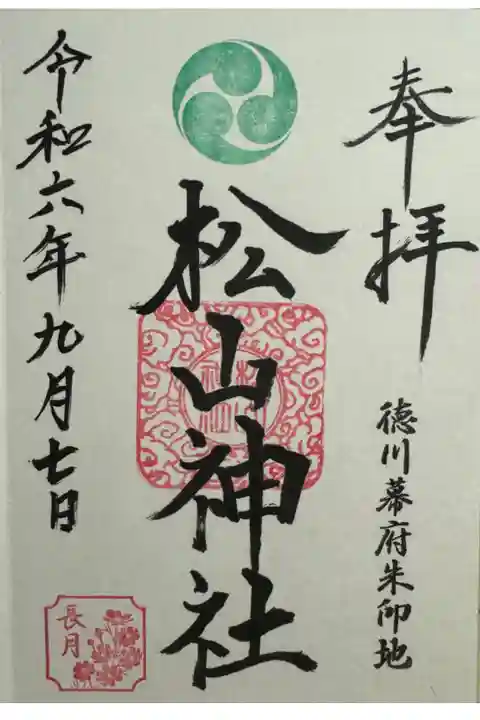 奉拝
徳川幕府朱印地
松山神社
令和六年九月七日
長月